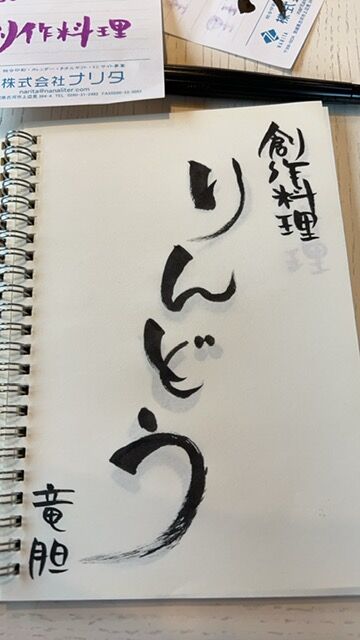 創作料理
りんどう
竜胆
作料理
株式会社ナリタ
narita@nanaliter.com